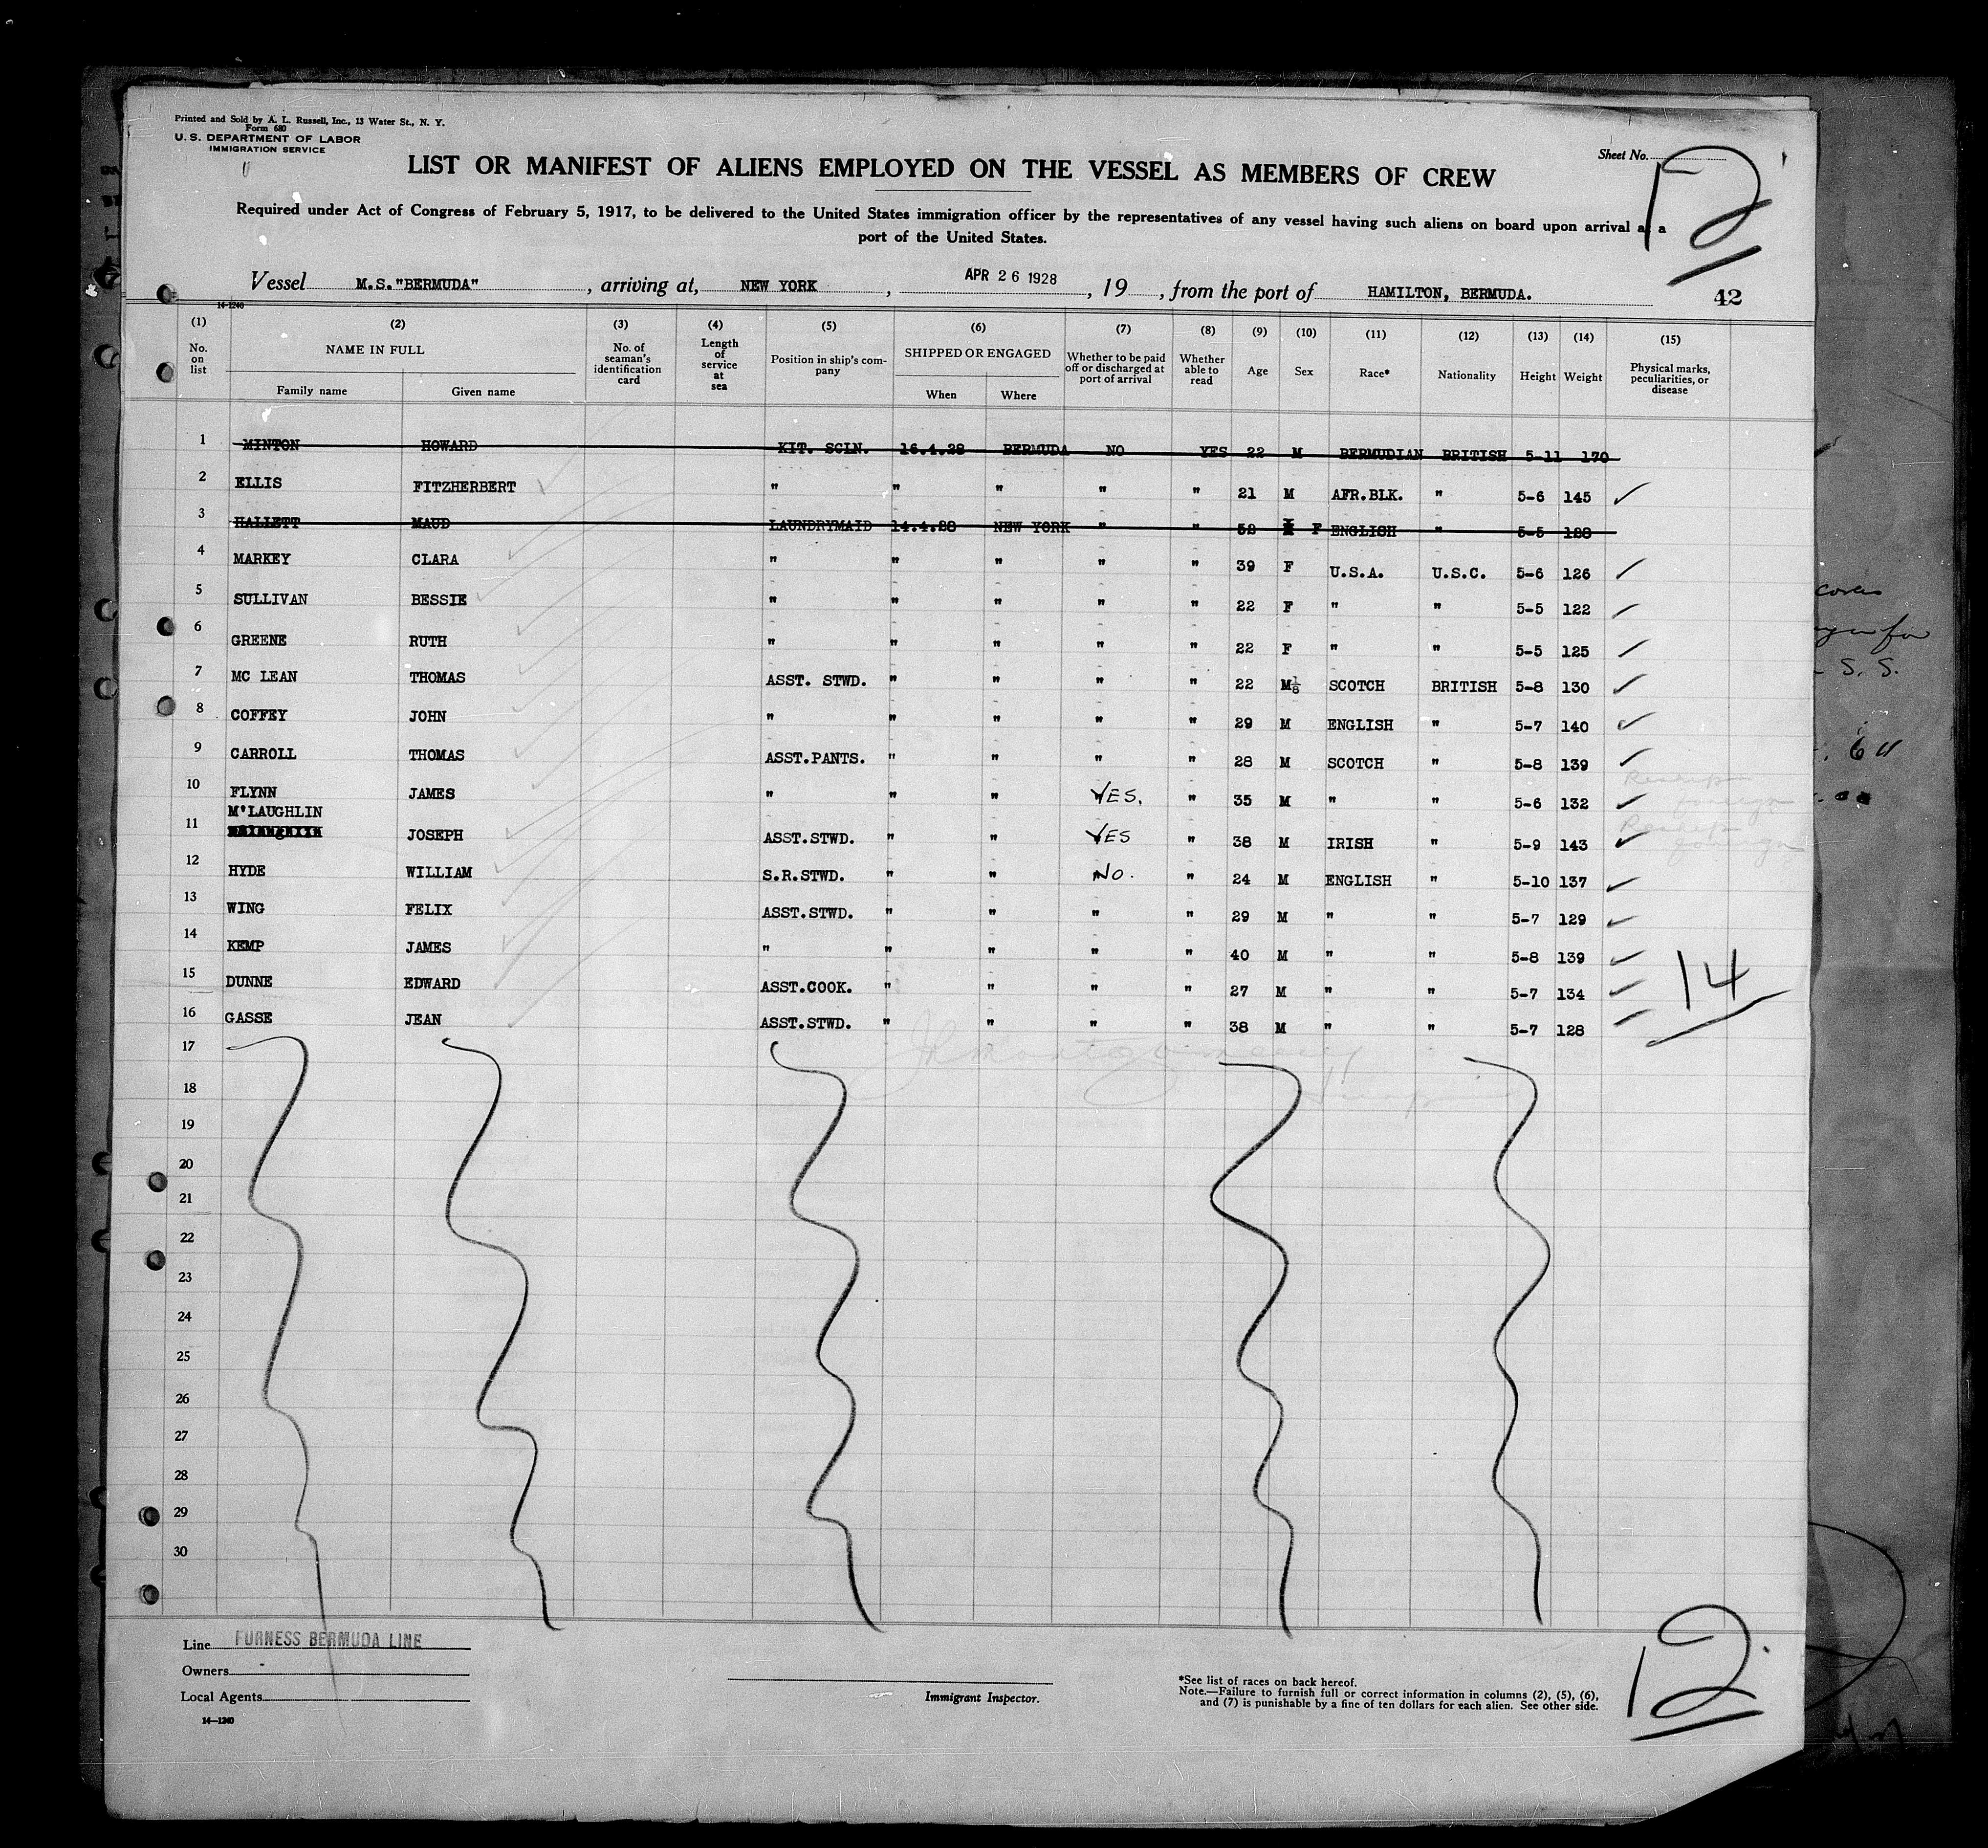 Printed and Sold by A. L. Russell, Inc., 13 Water St., N. Y.
Form 680
U. S. DEPARTMENT OF LABOR
IMMIGRATION SERVICE
Sheet No.
12
LIST OR MANIFEST OF ALIENS EMPLOYED ON THE VESSEL AS MEMBERS OF CREW
Required under Act of Congress of February 5, 1917, to be delivered to the United States immigration officer by the representatives of any vessel having such aliens on board upon arrival at a
port of the United States.
Vessel M.S."BERMUDA" , arriving at, NEW YORK , APR 26 1928 , 19 , from the port of HAMILTON, BERMUDA. 42
14-1240
(1) (2) (3) (4) (5) (6) (7) (8) (9) (10) (11) (12) (13) (14) (15)
No. on list NAME IN FULL Family name Given name No. of seaman's identification card Length of service at sea Position in ship's company SHIPPED OR ENGAGED When Where Whether to be paid off or discharged at port of arrival Whether able to read Age Sex Race* Nationality Height Weight Physical marks, peculiarities, or disease
1 MINTON HOWARD KIT. SCLN. 16.4.28 BERMUDA NO YES 22 M BERMUDIAN BRITISH 5-11 170
2 ELLIS FITZHERBERT " " " " " 21 M AFR.BLK. " 5-6 145
3 HALLETT MAUD LAUNDRYMAID 14.4.28 NEW YORK " " 52 F ENGLISH " 5-5 128
4 MARKEY CLARA " " " " " 39 F U.S.A. U.S.C. 5-6 126
5 SULLIVAN BESSIE " " " " " 22 F " " 5-5 122
6 GREENE RUTH " " " " " 22 F " " 5-5 125
7 MC LEAN THOMAS ASST. STWD. " " " " 22 M SCOTCH BRITISH 5-8 130
8 COFFEY JOHN " " " " " 29 M ENGLISH " 5-7 140
9 CARROLL THOMAS ASST.PANTS. " " " " 28 M SCOTCH " 5-8 139
10 FLYNN JAMES " " " YES. " 35 M " " 5-6 132
M'LAUGHLIN
11 JOSEPH ASST.STWD. " " YES " 38 M IRISH " 5-9 143
12 HYDE WILLIAM S.R.STWD. " " No. " 24 M ENGLISH " 5-10 137
13 WING FELIX ASST.STWD. " " " " 29 M " " 5-7 129
14 KEMP JAMES " " " " " 40 M " " 5-8 139
15 DUNNE EDWARD ASST.COOK. " " " " 27 M " " 5-7 134
14
16 GASSE JEAN ASST.STWD. " " " " 38 M " " 5-7 128
17
18
19
20
21
22
23
24
25
26
27
28
29
30
Line FURNESS BERMUDA LINE
Owners
Local Agents
14—1240
Immigrant Inspector.
*See list of races on back hereof.
Note.—Failure to furnish full or correct information in columns (2), (5), (6),
and (7) is punishable by a fine of ten dollars for each alien. See other side.
12